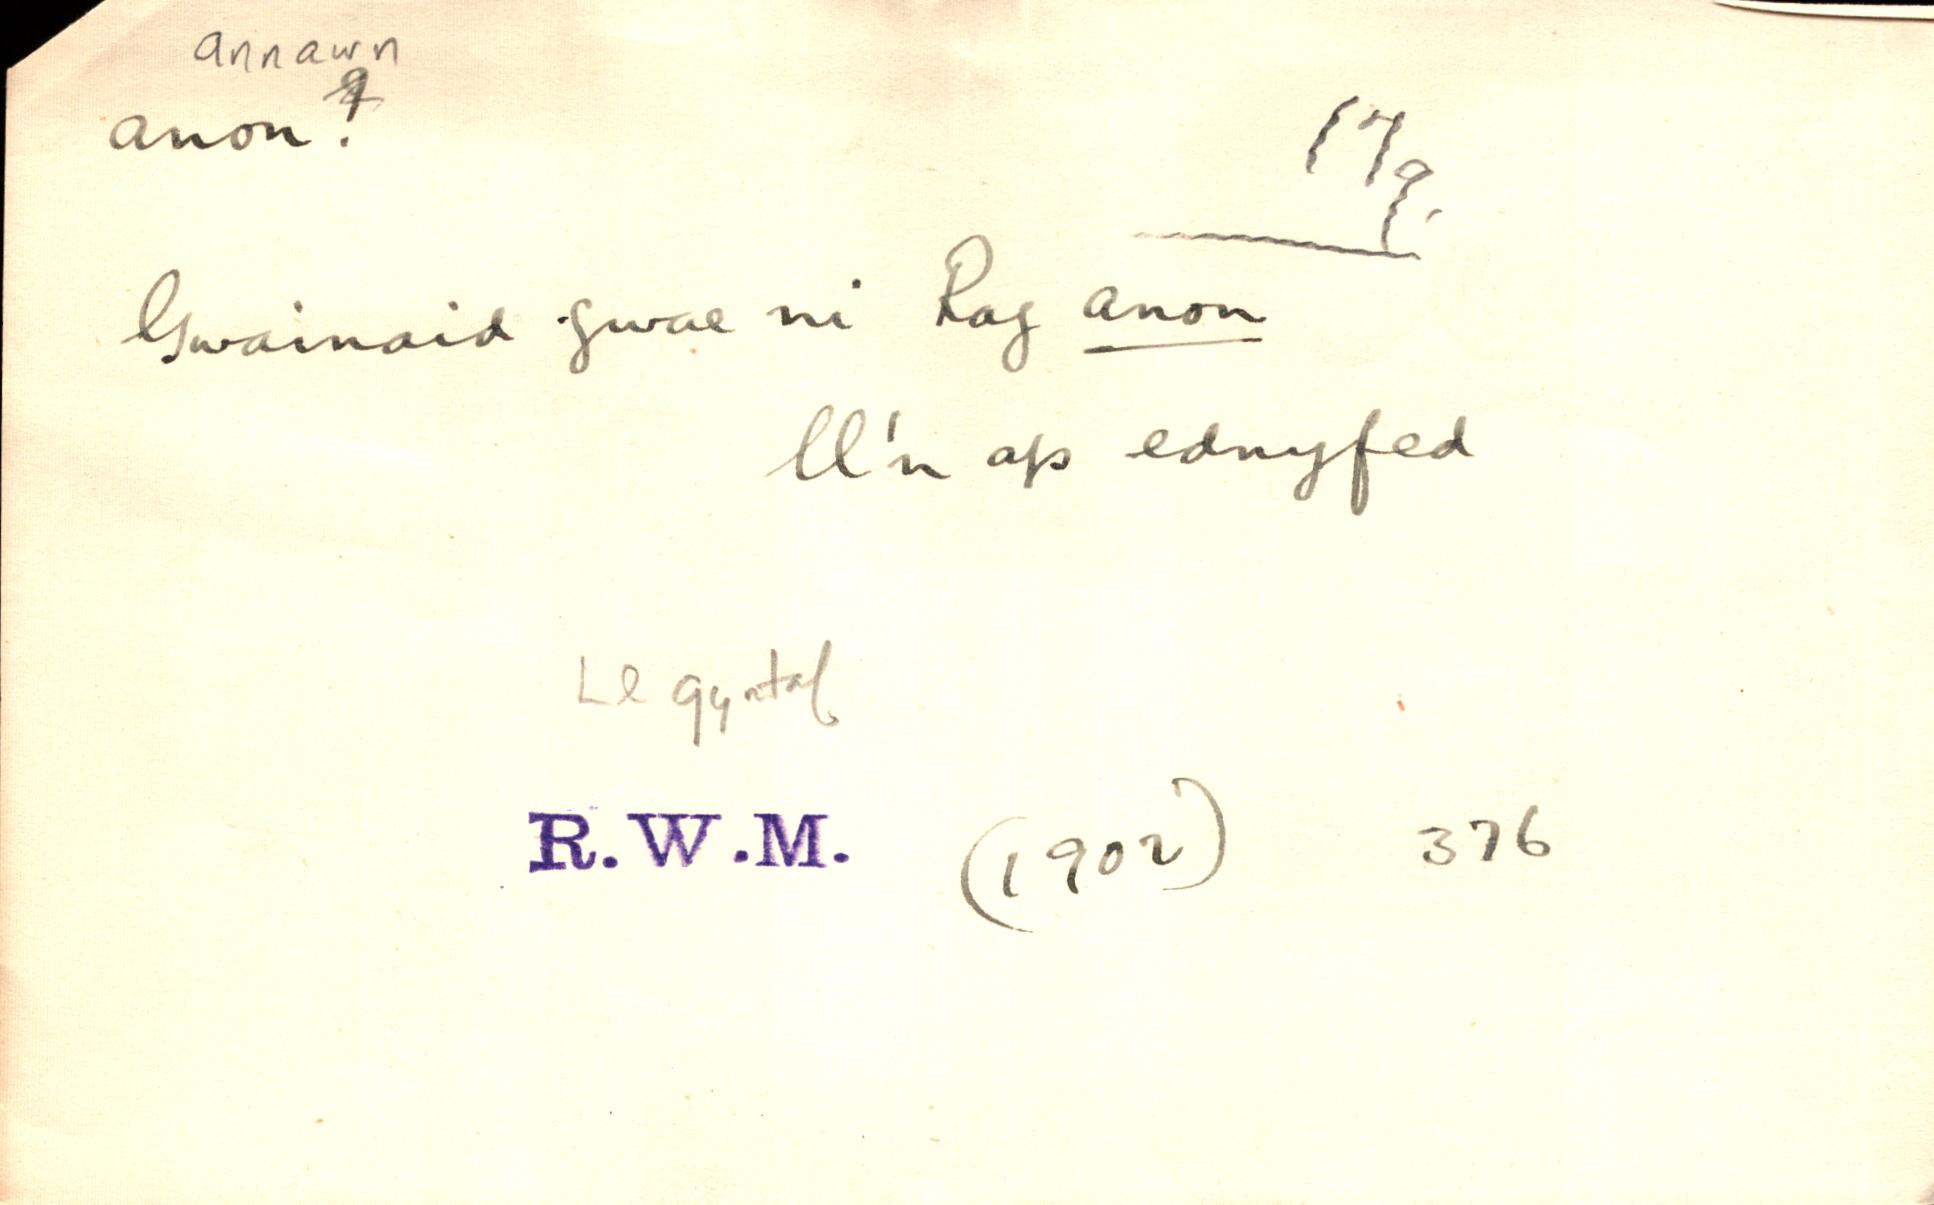 annawn
anon?
17g.
Gwainaid gwae ni Rag anon
ll'n ap ednyfed
Ll gyntaf
R.W.M. (1902) 376